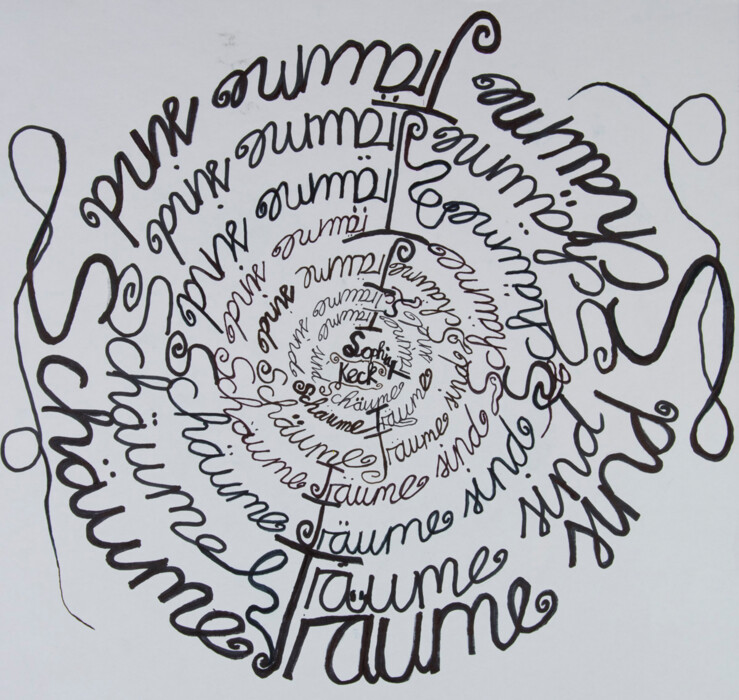 Träume sind Schäume
Träume sind Schäume
Träume sind Schäume
Träume sind Schäume
Träume sind Schäume
Träume sind Schäume
Träume sind Schäume
Träume sind Schäume
Träume sind Schäume
Träume sind Schäume
Träume sind Schäume
Träume sind Schäume
Keck